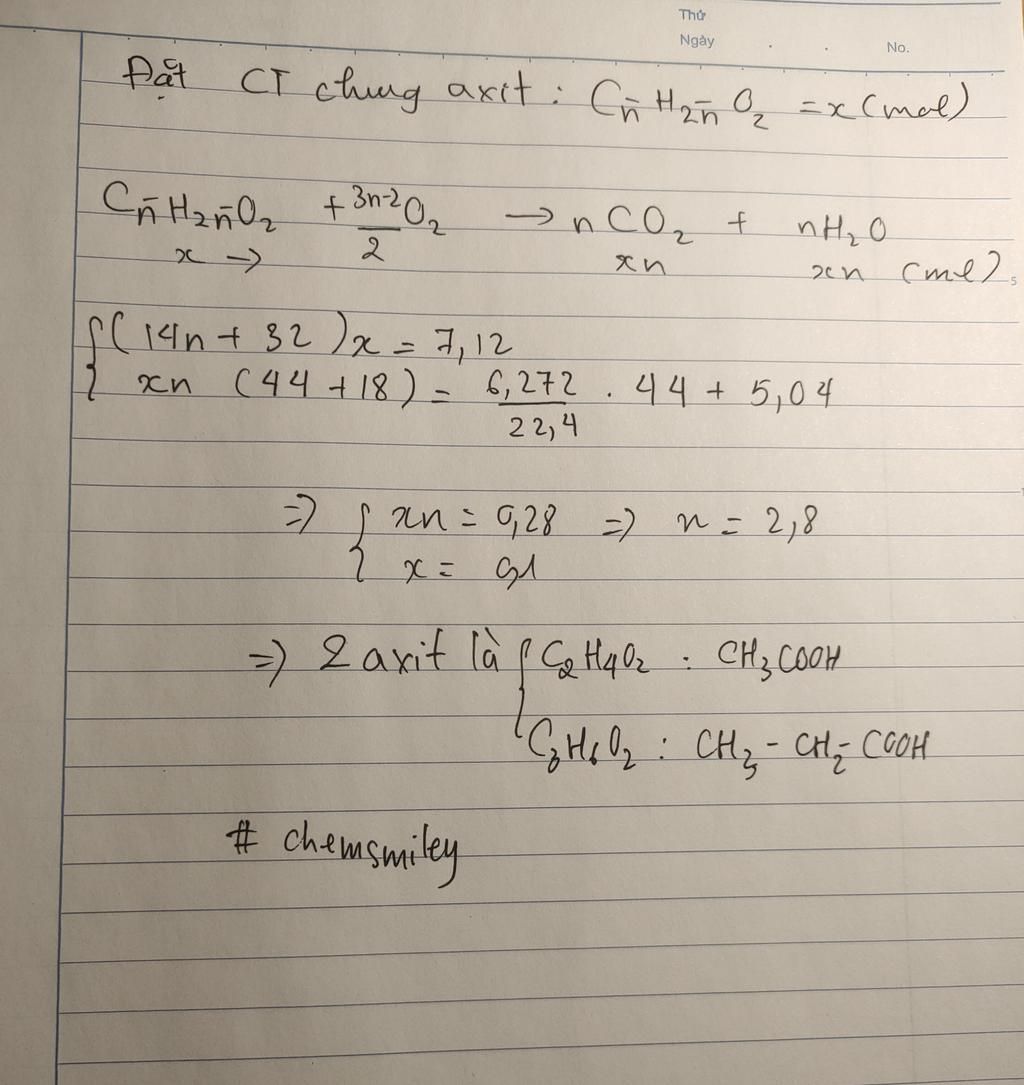 Thứ
Ngày . . No.
Đặt CT chung axit : Cn̄ H2n̄ O2 = x (mol)
Cn̄ H2n̄ O2 + (3n-2)/2 O2 → n CO2 + nH2O
x → xn xn (mol)
{ (14n + 32)x = 7,12
xn (44 + 18) = 6,272/22,4 . 44 + 5,04
=> { xn = 0,28 => n = 2,8
x = 0,1
=> 2 axit là { C2H4O2 : CH3COOH
C3H6O2 : CH3 - CH2 - COOH
# chemsmiley